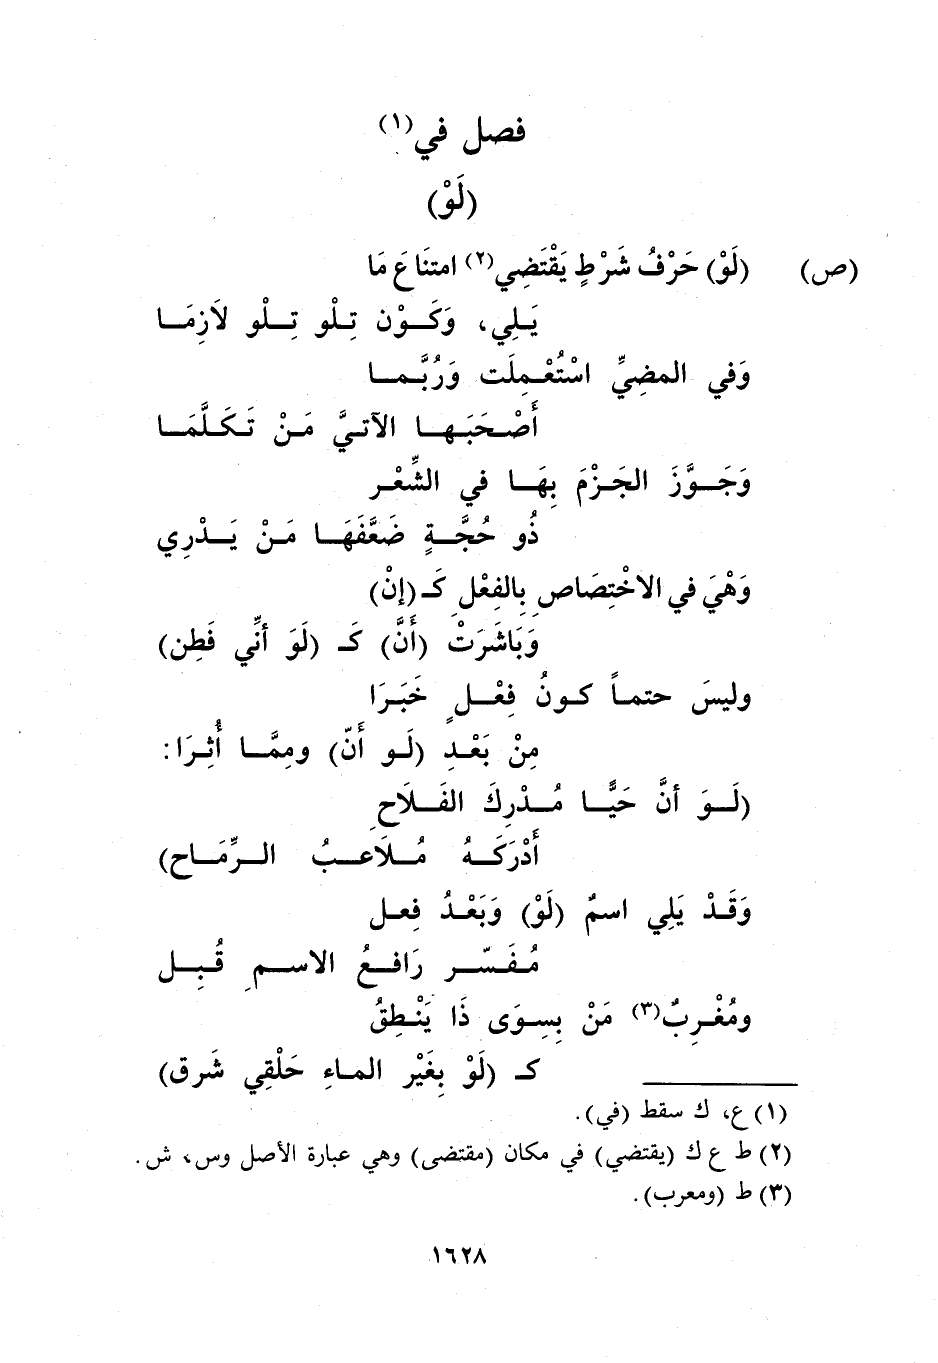 فصل في(١)
(لَوْ)
(ص) (لَوْ) حَرْفُ شَرْطٍ يَقْتَضِي(٢) امتنَاعَ مَا
يَلِي، وَكَوْن تِلْو تِلْو لاَزِمَا
وَفي المضيِّ اسْتُعْمِلَت وَرُبَّما
أَصْحَبَها الآتيَّ مَنْ تَكَلَّمَا
وَجَوَّزَ الجَزْمَ بِهَا في الشِّعْر
ذُو حُجَّةٍ ضَعَّفَهَا مَنْ يَدْرِي
وَهْيَ في الاخْتِصَاصِ بِالفِعْلِ كَـ (إنْ)
وَبَاشَرَتْ (أَنَّ) كَـ (لَوَ أنِّي فَطِن)
وليسَ حتماً كونُ فِعْلٍ خَبَرَا
مِنْ بَعْدِ (لَو أَنّ) ومِمَّا أُثِرَا:
(لَوَ أنَّ حَيًّا مُدْرِكَ الفَلاَحِ
أَدْرَكَهُ مُلاَعبُ الرِّمَاح)
وَقَدْ يَلِي اسمٌ (لَوْ) وَبَعْدُ فِعل
مُفَسّر رَافعُ الاسمِ قُبِل
ومُغْرِبٌ(٣) مَنْ بِسِوَى ذَا يَنْطِقُ
كـ (لَوْ بِغَيْر الماءِ حَلْقِي شَرق)
(١) ع، ك سقط (في).
(٢) ط ع ك (يقتضي) في مكان (مقتضى) وهي عبارة الأصل وس، ش.
(٣) ط (ومعرب).
١٦٢٨